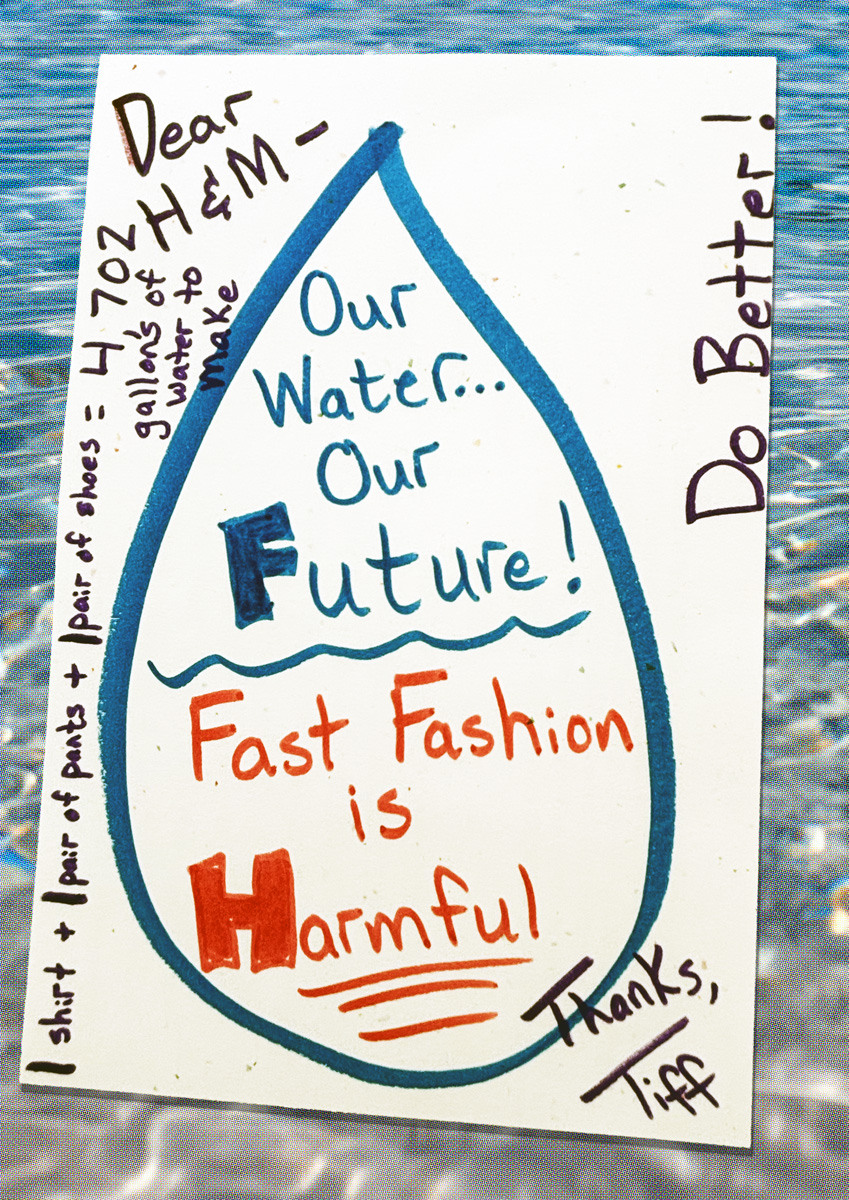 Dear
H & M -
1 shirt + 1 pair of pants + 1 pair of shoes = 4702
gallon's of
water to
make
Our
Water...
Our
Future!
Fast Fashion
is
Harmful
Do Better!
Thanks,
Tiff